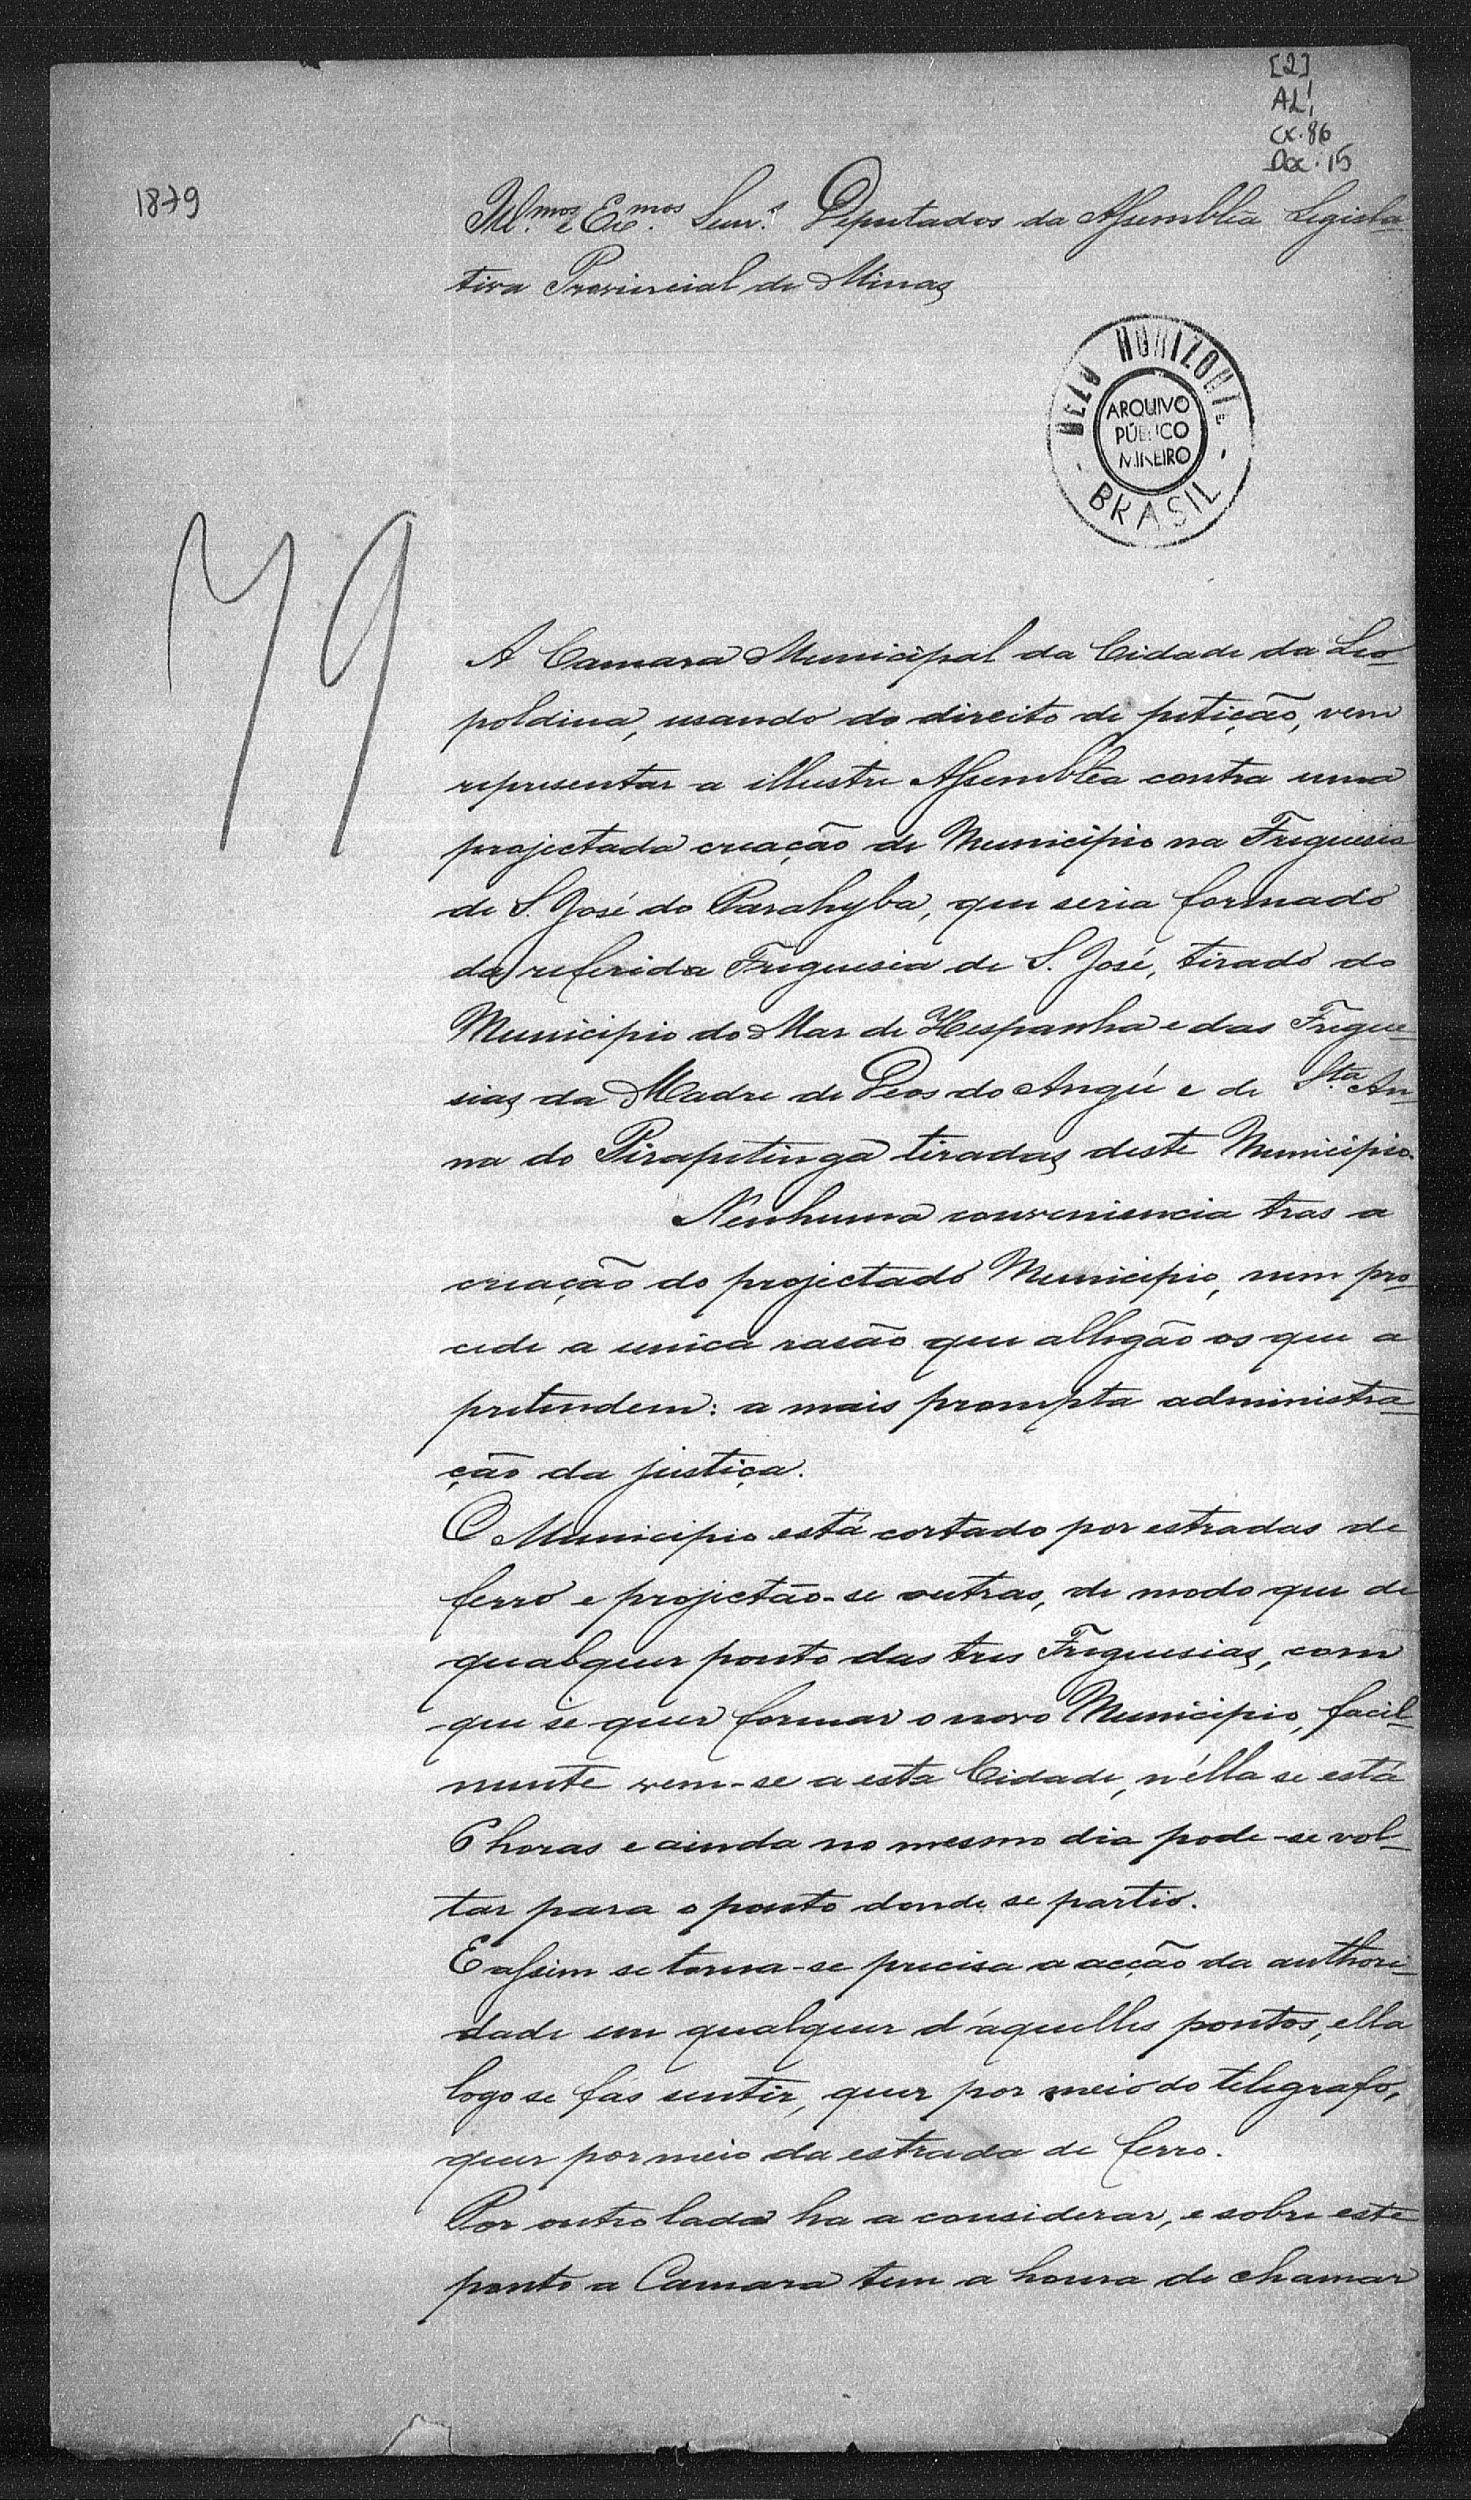 [2]
AL!
cx. 86
Doc. 15
1879
Ill.mos e Ex.mos Senr.s Deputados da Assembléa Legisla-
tiva Provincial de Minas
BELO HORIZONTE
ARQUIVO
PÚBLICO
MINEIRO
BRASIL
79
A Camara Municipal da Cidade da Leo-
poldina, usando do direito de petição, vem
representar a illustre Assembléa contra uma
projectada creação de Municipio na Freguesia
de S. José do Parahyba, que seria formado
da referida Freguesia de S. José, tirado do
Municipio do Mar de Hespanha e das Fregue-
sias da Madre de Deos do Angú e de Sta. An-
na do Pirapitinga tiradas deste Municipio.
Nenhuma conveniencia tras a
creação do projectado Municipio, nem pro-
cede a unica rasão que allegão os que a
pretendem: a mais prompta administra-
ção da justiça.
O Municipio está cortado por estradas de
ferro e projectão-se outras, de modo que de
qualquer ponto das tres Freguesias, com
que se quer formar o novo Municipio, facil-
mente vem-se a esta Cidade, n'élla se está
6 horas e ainda no mesmo dia pode-se vol-
tar para o ponto donde se partio.
E assim se torna-se precisa a acção da authori-
dade em qualquer d'áquelles pontos, ella
logo se fás sentir, quer por meio do telegrafo,
quer por meio da estrada de ferro.
Por outro lado ha a considerar, e sobre este
ponto a Camara tem a honra de chamar